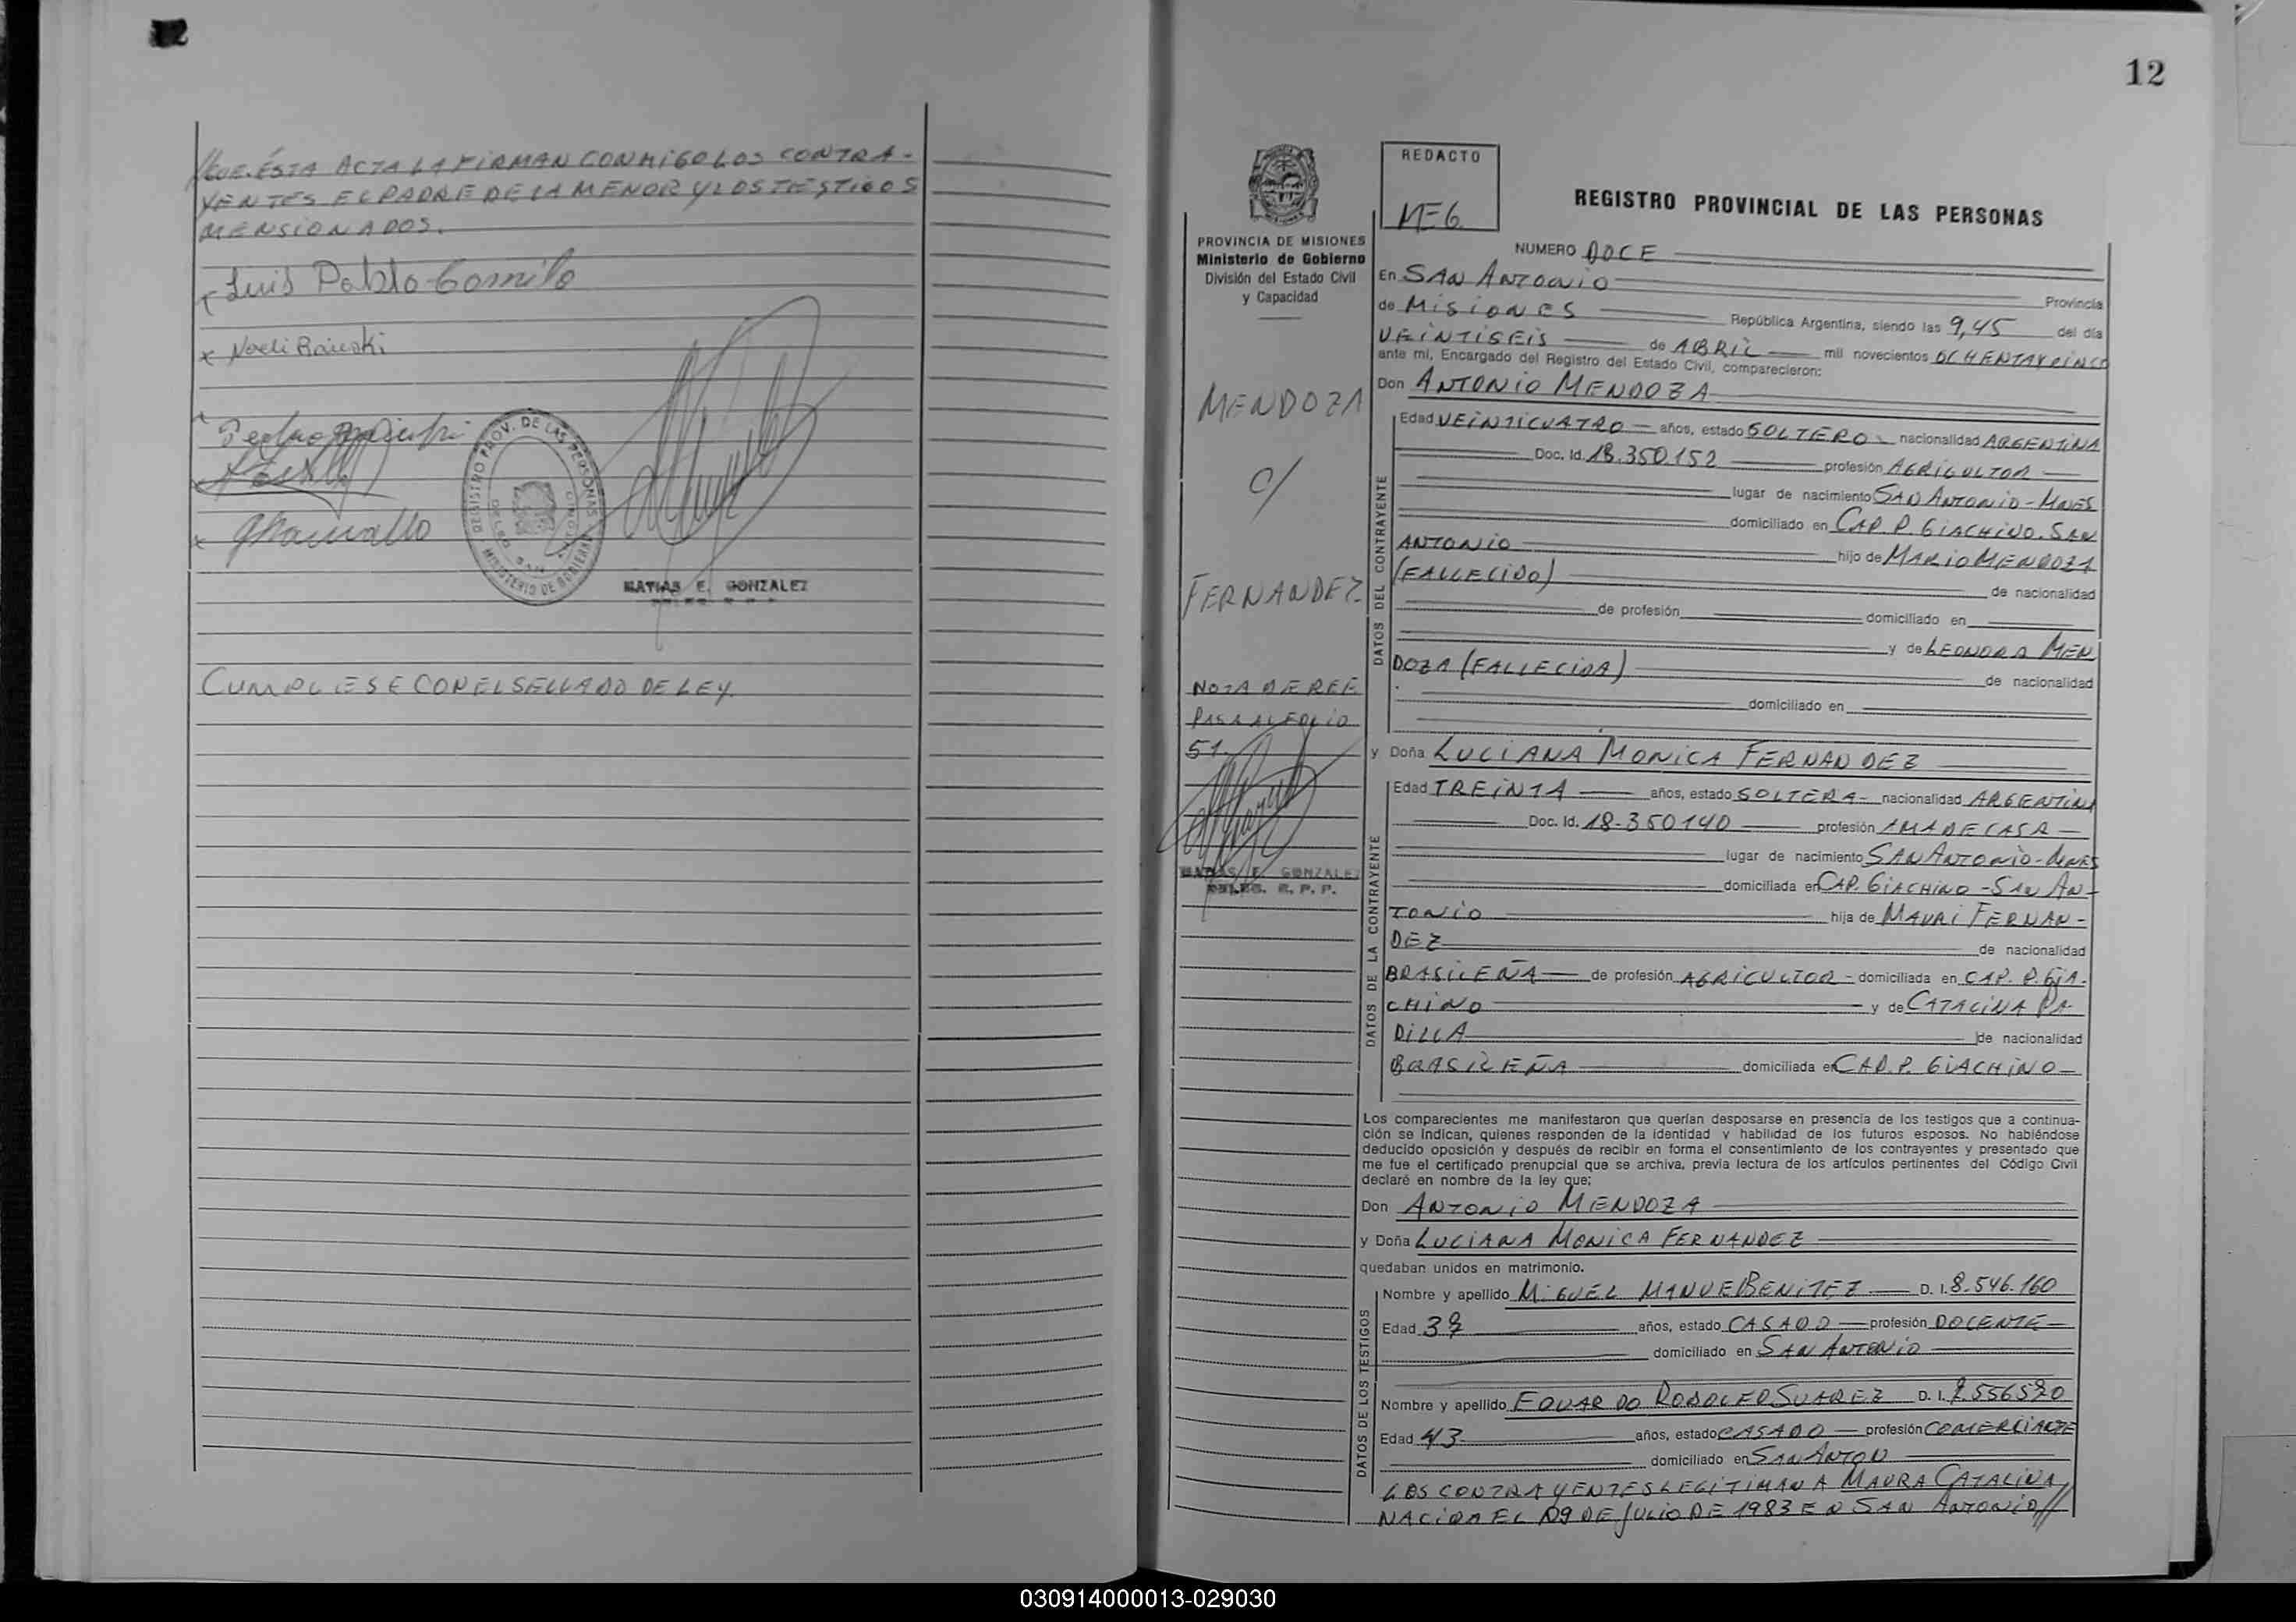 12
//QUE. ÉSTA ACTA LA FIRMAN CONMIGO LOS CONTRA-
YENTES EL PADRE DE LA MENOR Y LOS TESTIGOS
MENSIONADOS.
Luis Pablo
x Noeli
Pedro
REGISTRO PROV. DE LAS PERSONAS
MINISTERIO DE GOBIERNO
MATIAS E. GONZALEZ
CUMPLIESE CON EL SELLADO DE LEY.
12
REDACTO
M=6.
REGISTRO PROVINCIAL DE LAS PERSONAS
PROVINCIA DE MISIONES
Ministerio de Gobierno
División del Estado Civil
y Capacidad
MENDOZA
c/
FERNANDEZ
NOTA DE REF
PASA AL FOLIO
51.
MATIAS E. GONZALEZ
DELEG. R. P. P.
NUMERO DOCE
En SAN ANTONIO
Provincia
de MISIONES República Argentina, siendo las 9,45 del día
VEINTISEIS de ABRIL mil novecientos OCHENTA Y CINCO
ante mí, Encargado del Registro del Estado Civil, comparecieron:
Don ANTONIO MENDOZA
DATOS DEL CONTRAYENTE
Edad VEINTICUATRO años, estado SOLTERO nacionalidad ARGENTINA
Doc. Id. 18.350.152 profesión AGRICULTOR
lugar de nacimiento SAN ANTONIO - MNES
domiciliado en CAP. P. GIACHINO. SAN
ANTONIO hijo de MARIO MENDOZA
(FALLECIDO) de nacionalidad
de profesión domiciliado en
y de LEONORA MEN
DOZA (FALLECIDA) de nacionalidad
domiciliado en
y Doña LUCIANA MONICA FERNANDEZ
DATOS DE LA CONTRAYENTE
Edad TREINTA años, estado SOLTERA - nacionalidad ARGENTINA
Doc. Id. 18-350140 profesión AMA DE CASA
lugar de nacimiento SAN ANTONIO - MNES
domiciliada en CAP. GIACHINO - SAN AN-
TONIO hija de MAURI FERNAN-
DEZ de nacionalidad
BRASILEÑA de profesión AGRICULTOR - domiciliada en CAP. P. GIA-
CHINO y de CATALINA PA
DILLA de nacionalidad
BRASILEÑA domiciliada en CAP. P. GIACHINO
Los comparecientes me manifestaron que querían desposarse en presencia de los testigos que a continua-
ción se indican, quienes responden de la identidad y habilidad de los futuros esposos. No habiéndose
deducido oposición y después de recibir en forma el consentimiento de los contrayentes y presentado que
me fue el certificado prenupcial que se archiva, previa lectura de los artículos pertinentes del Código Civil
declaré en nombre de la ley que:
Don ANTONIO MENDOZA
y Doña LUCIANA MONICA FERNANDEZ
quedaban unidos en matrimonio.
DATOS DE LOS TESTIGOS
Nombre y apellido MIGUEL MANUEL BENITEZ D. I. 8.546.160
Edad años, estado CASADO profesión DOCENTE
domiciliado en SAN ANTONIO
Nombre y apellido EDUARDO RODOLFO SUAREZ D. I.
Edad 43 años, estado CASADO profesión COMERCIANTE
domiciliado en SAN ANTON
LOS CONTRAYENTES LEGITIMAN A MAURA CATALINA,
NACIDA EL 09 DE JULIO DE 1983 EN SAN ANTONIO//
030914000013-029030